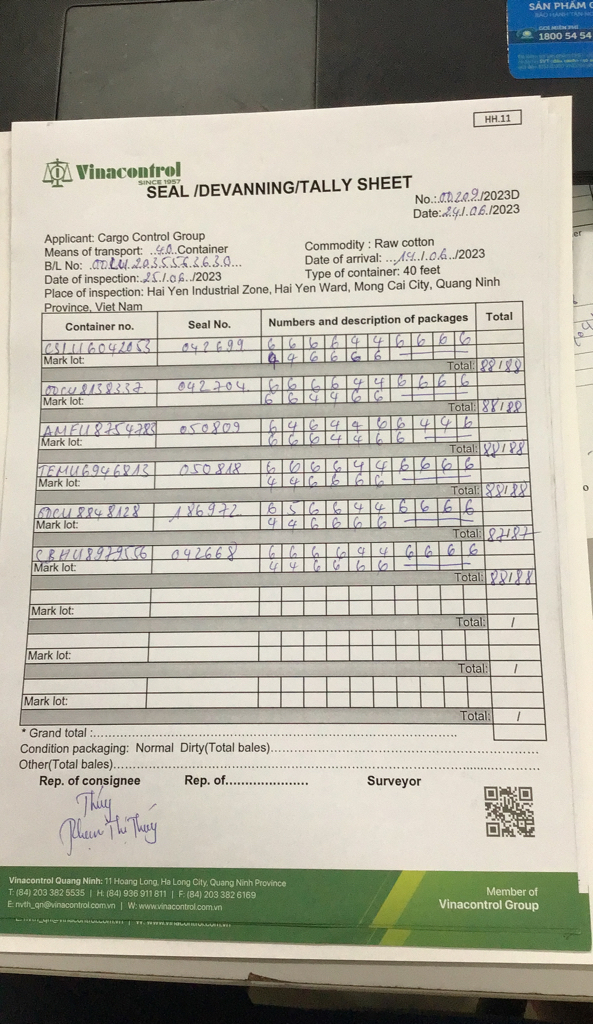 SẢN PHẨM
1800 54 54
HH.11
Vinacontrol
SINCE 1957
SEAL /DEVANNING/TALLY SHEET
No.: 00209/2023D
Date: 24/06/2023
Applicant: Cargo Control Group
Commodity : Raw cotton
Means of transport: 40 Container
Date of arrival: 14/06/2023
B/L No:
Type of container: 40 feet
Date of inspection: 25/06/2023
Place of inspection: Hai Yen Industrial Zone, Hai Yen Ward, Mong Cai City, Quang Ninh
Province, Viet Nam
Container no. Seal No. Numbers and description of packages Total
042699 6 6 6 6 4 4 6 6 6 6
Mark lot: 4 4 6 6 6 6
Total: 88/88
042704 6 6 6 6 4 4 6 6 6 6
Mark lot: 6 6 4 4 6 6
Total: 88/88
AMFU8754783 050809 6 4 6 4 4 6 6 4 4 6
Mark lot: 6 6 6 4 4 6 6
Total: 88/88
TEMU6946813 050818 6 6 6 6 4 4 6 6 6 6
Mark lot: 4 4 6 6 6 6
Total: 88/88
186972 6 5 6 6 4 4 6 6 6 6
Mark lot: 4 4 6 6 6 6
Total: 87/87
CBHU8979556 042668 6 6 6 6 4 4 6 6 6 6
Mark lot: 4 4 6 6 6 6
Total: 88/88
Mark lot:
Total: /
Mark lot:
Total: /
Mark lot:
Total: /
* Grand total :
Condition packaging: Normal Dirty(Total bales)
Other(Total bales)
Rep. of consignee Rep. of Surveyor
Thúy
Phạm Thị Thúy
Vinacontrol Quang Ninh: 11 Hoang Long, Ha Long City, Quang Ninh Province
T: (84) 203 382 5535 | H: (84) 936 911 811 | F: (84) 203 382 6169
E: nvth_qn@vinacontrol.com.vn | W: www.vinacontrol.com.vn
Member of
Vinacontrol Group